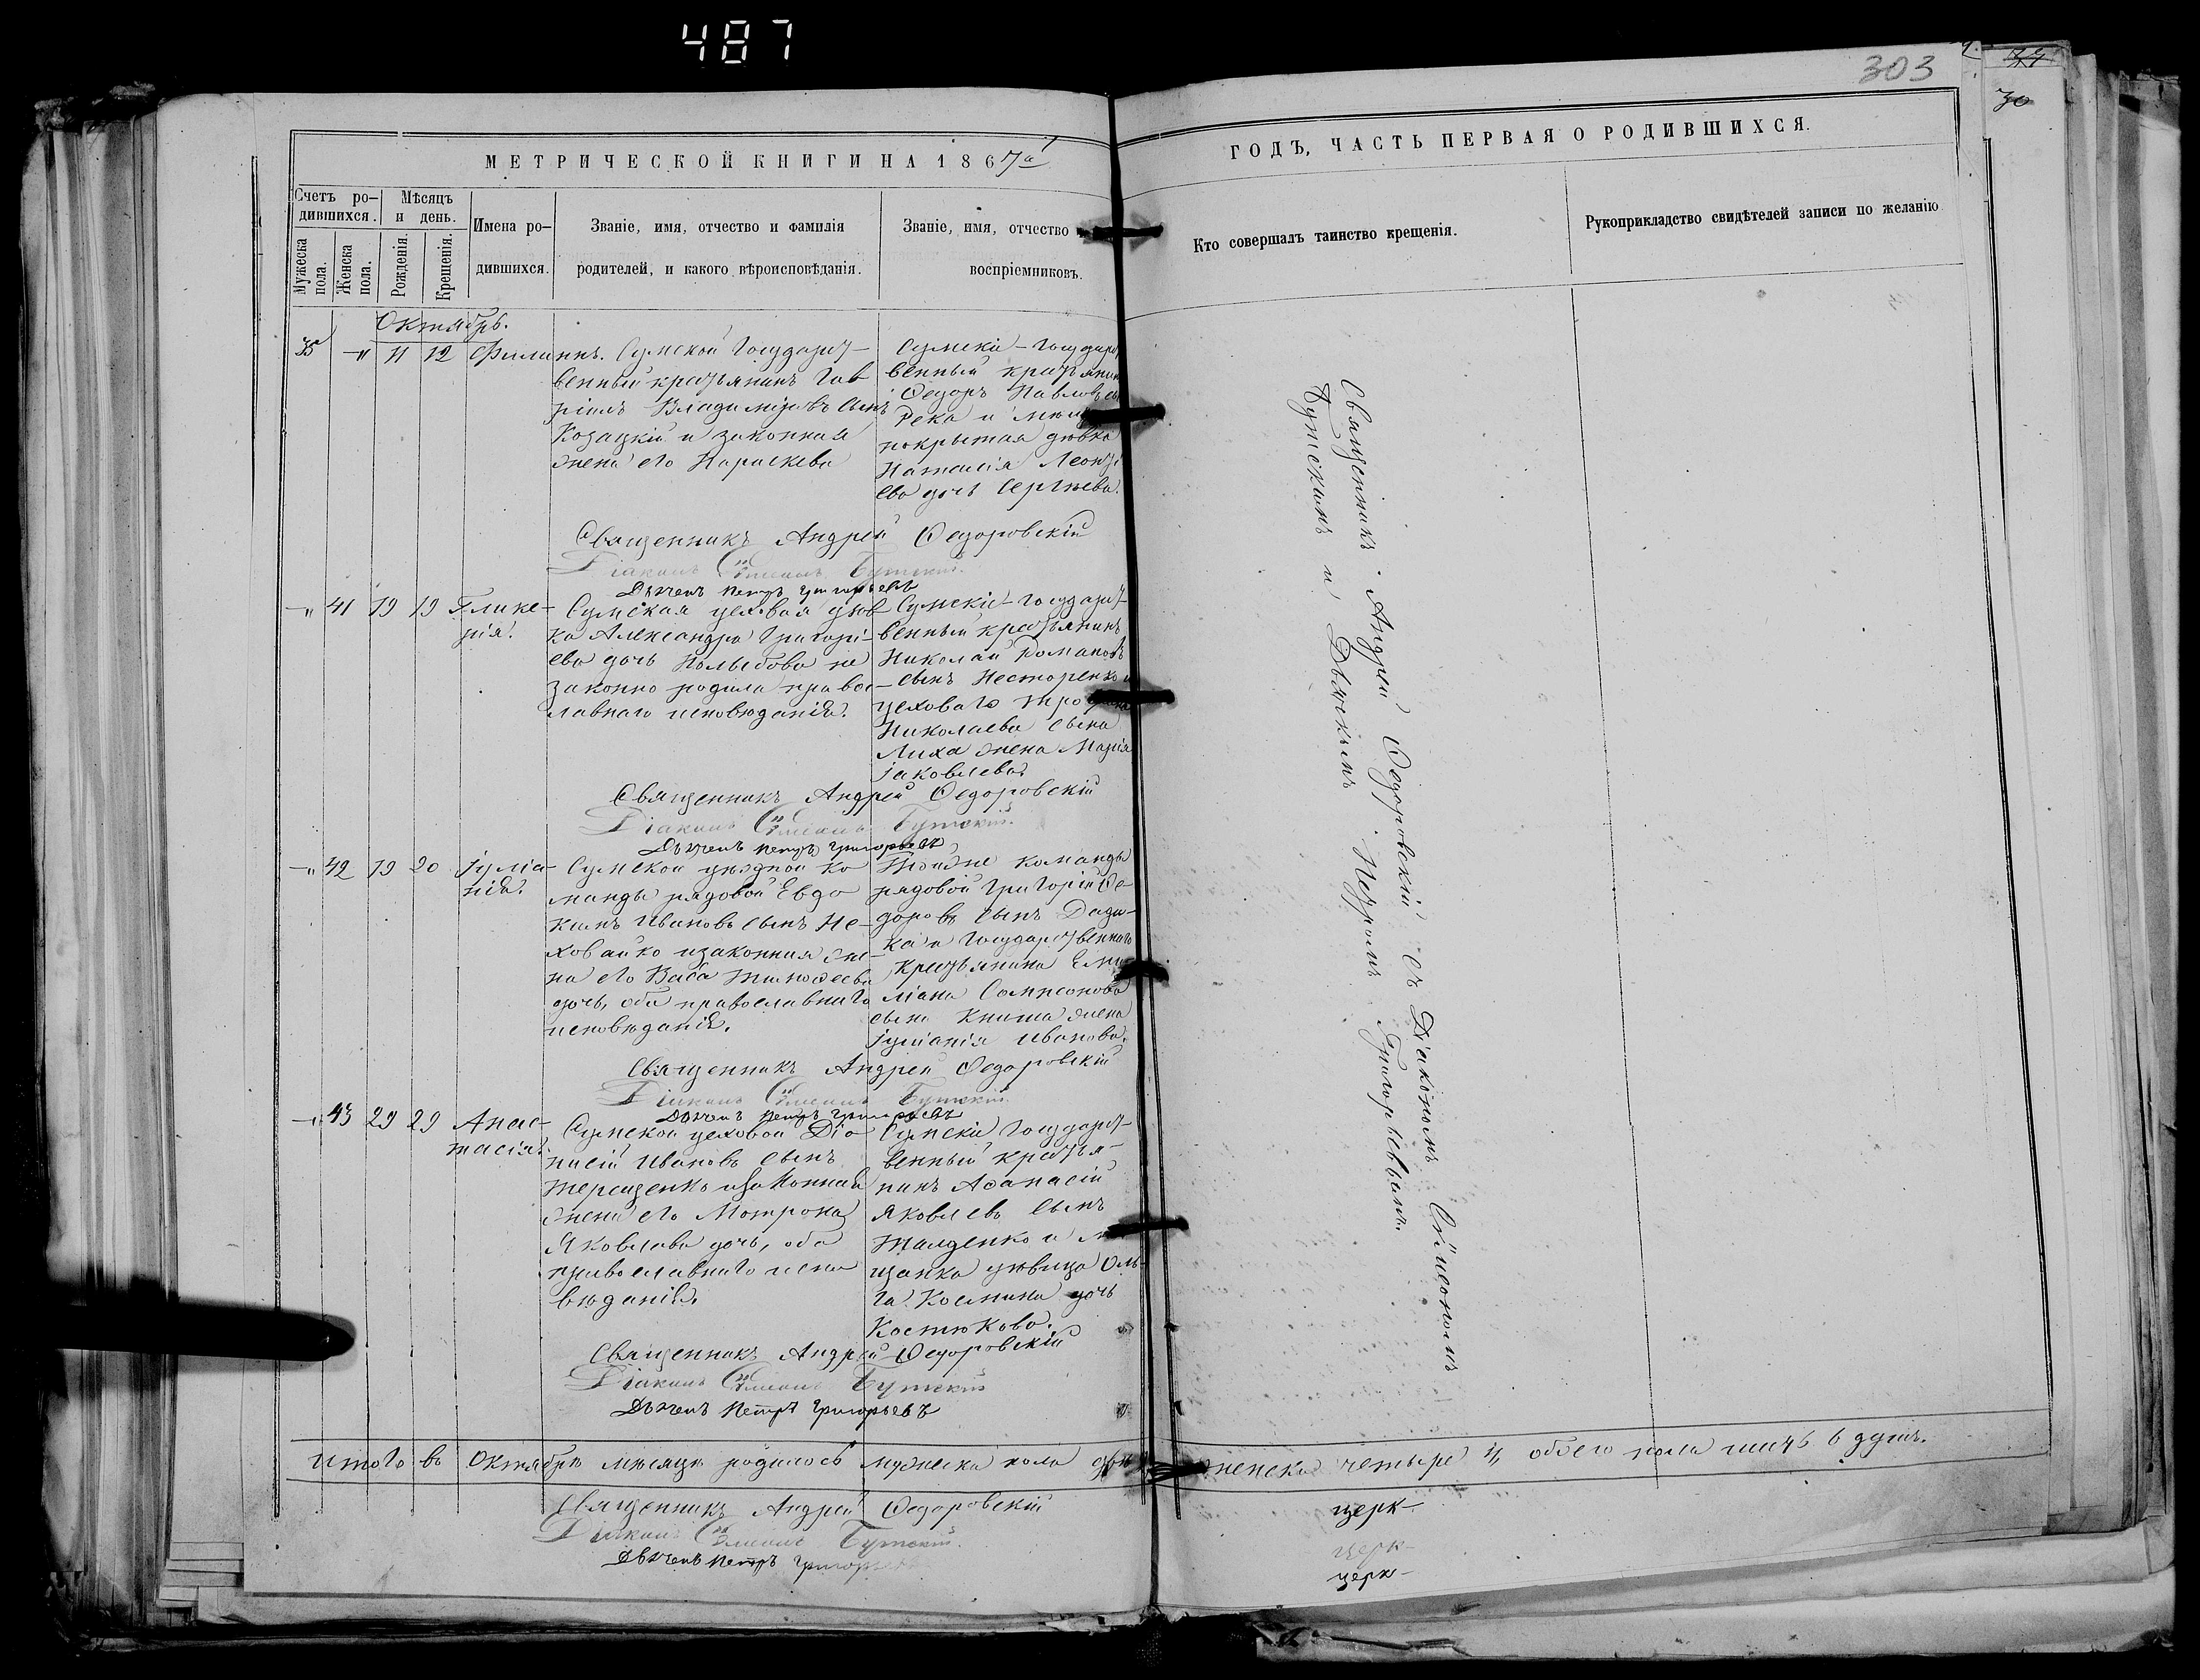 487
303
30
МЕТРИЧЕСКОЙ КНИГИ НА 1867й
ГОДЪ, ЧАСТЬ ПЕРВАЯ О РОДИВШИХСЯ.
Счетъ ро-
дившихся.
Мѣсяцъ
и день.
Мужеска
пола.
Женска
пола.
Рожденія.
Крещенія.
Имена ро-
дившихся.
Званіе, имя, отчество и фамилія
родителей, и какого вѣроисповѣданія.
Званіе, имя, отчество
воспріемниковъ.
Кто совершалъ таинство крещенія.
Рукоприкладство свидѣтелей записи по желанію
Октябрь.
11 12 Филиппъ.
Сумской Государст-
венный крестьянинъ Гав
ріилъ Владиміровъ сынъ
Козацкій и законная
жена его Параскева
Сумскіе Государст
венный крестьянин
Ѳедоръ Павловъ
Река и
покрытая дѣвка
Наталія Леонті
ева дочь Сергѣева.
Священникъ Андрей Ѳедоровскій
Діаконъ Сѵмеонъ Бутскій.
Дьячекъ Петръ Григорьевъ
41 19 19 Глике-
рія.
Сумская цеховая дѣв
ка Александра Григорі-
ева дочь не
законно родила правос-
лавнаго исповѣданія.
Сумскіе Государст-
венный крестьянинъ
Николай Романовъ
сынъ Несторенко и
цеховаго Трофима
Николаева сына
Лиха жена Марія
Іаковлева.
Священникъ Андрей Ѳедоровскій
Діаконъ Сѵмеонъ Бутскій.
Дьячекъ Петръ Григорьевъ
42 19 20 Іуліа-
нія.
Сумской уѣздной ко
манды рядовой Евдо
кимъ Ивановъ сынъ Не-
ховайко и законная же-
на его Васса Тимоѳеева
дочь, оба православнаго
исповѣданія.
Тойже команды
рядовой Григорій Ѳе-
доровъ сынъ
ка и Государственнаго
крестьянина Еми
ліана Сампсонова
сына Книша жена
Іуліанія Иванова.
Священникъ Андрей Ѳедоровскій
Діаконъ Сѵмеонъ Бутскій.
Дьячекъ Петръ Григорьевъ
43 29 29 Анас-
тасія.
Сумской цеховой Діо-
нисій Ивановъ сынъ
Терещенко и законная
жена его Мотрона
Яковлева дочь, оба
православнаго испо
вѣданія.
Сумскіе Государст-
венный крестья-
нинъ Аѳанасій
Яковлевъ сынъ
и
щанка дѣвица Оль-
га Космина дочь
Костюкова.
Священникъ Андрей Ѳедоровскій
Діаконъ Сѵмеонъ Бутскій
Дьячекъ Петръ Григорьевъ
Священникъ Андрей Ѳедоровскій съ Діакономъ Сѵмеономъ
Бутскимъ и Дьячкомъ Петромъ Григорьевымъ.
Итого въ Октябрѣ мѣсяцѣ родилось мужеска пола двое женска четыре обоего пола шесть 6 душъ.
Священникъ Андрей Ѳедоровскій
Діаконъ Сѵмеонъ Бутскій.
Дьячекъ Петръ Григорьевъ
церк-
церк-
церк-